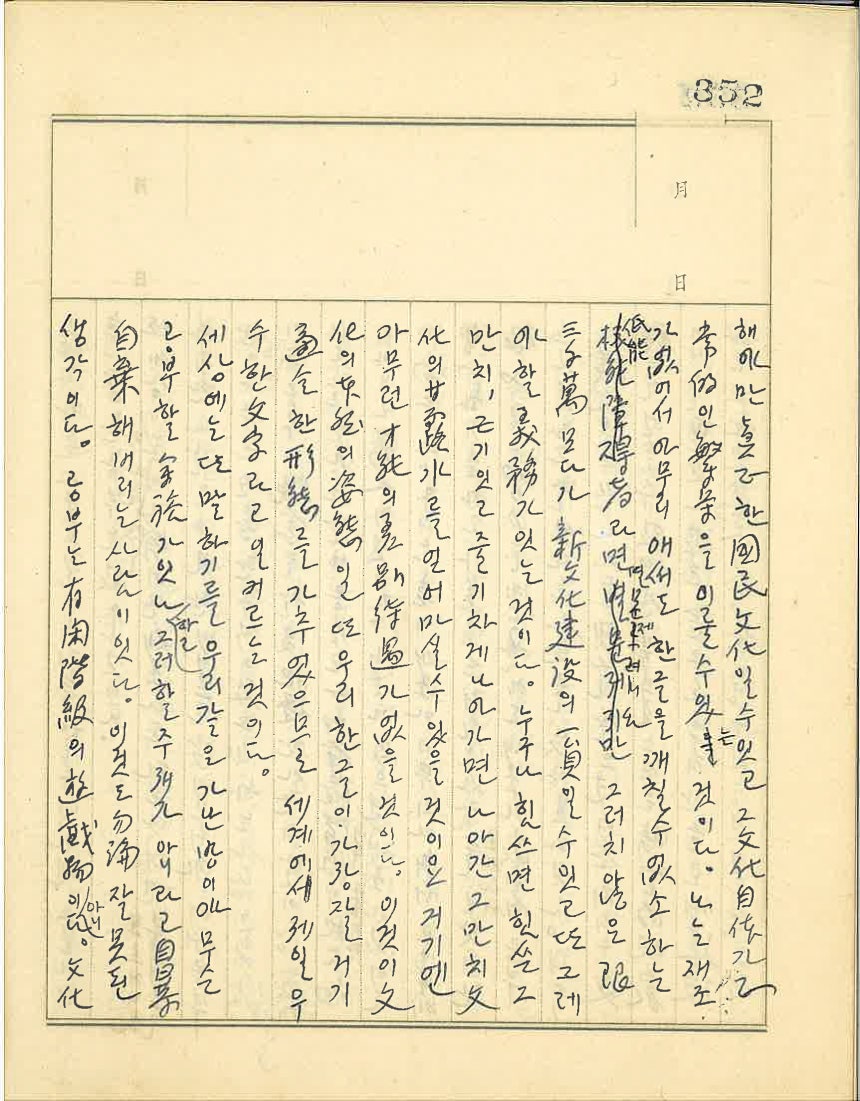 352
月
日
해야만 眞正한 國民文化일 수 있고 그 文化自体가 正
常的인 繁榮을 이룰 수 있는 것이다. 나는 재조
가 없어서 아무리 애써도 한글을 깨칠 수 없소 하는
低能者라면 별문제려니와 그러치 않은 限
三千萬 모다가 新文化建設의 一員일 수 있고 또 그레
야 할 義務가 있는 것이다. 누구나 힘쓰면 힘쓴 그
만치, 근기있고 줄기차게 나아가면 나아간 그만치 文
化의 甘露水를 얻어마실 수 있을 것이요 거기엔
아무런 才能의 差別待遇가 없을 것이다. 이것이 文
化의 本然의 姿態일 또 우리 한글이 가장 잘 거기
適合한 形態를 가추었으므로 세계에서 제일 우
수한 文字라고 일커르는 것이다.
세상에는 또 말하기를 우리 같은 가난뱅이야 무슨
공부할 余裕가 있나 그러할 주제가 아니라고 自暴
自棄해버리는 사람이 있다. 이것도 勿論 잘못된
생각이다. 공부는 有閑階級의 遊戱物이 아니다. 文化